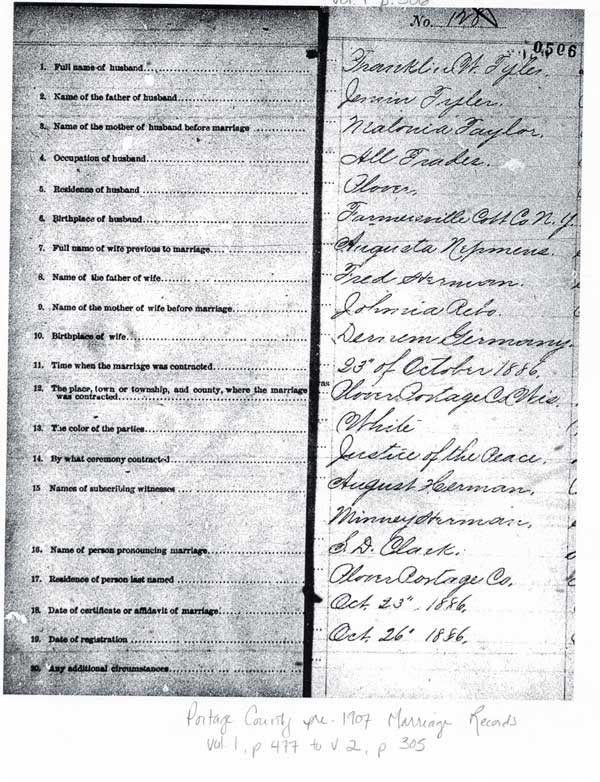 vol. 1 p. 506
No. 128
0506
1. Full name of husband Franklin W. Tyler.
2. Name of the father of husband Tyler.
3. Name of the mother of husband before marriage Malonia Taylor.
4. Occupation of husband All Trades.
5. Residence of husband Plover.
6. Birthplace of husband Farmersville Catt Co N. Y.
7. Full name of wife previous to marriage Augusta
8. Name of the father of wife Fred Herman.
9. Name of the mother of wife before marriage Johnia
10. Birthplace of wife Germany.
11. Time when the marriage was contracted 23" of October 1886.
12. The place, town or township, and county, where the marriage was
was contracted Plover Portage Co Wis.
13. The color of the parties White
14. By what ceremony contracted Justice of the Peace.
15 Names of subscribing witnesses August Herman.
Minney Herman.
16. Name of person pronouncing marriage S. D. Clark.
17. Residence of person last named Plover Portage Co.
18. Date of certificate or affidavit of marriage Oct. 23" 1886.
19. Date of registration Oct. 26" 1886.
20. Any additional circumstances
Portage County pre-1907 Marriage Records
vol. 1, p 477 to v 2, p 305